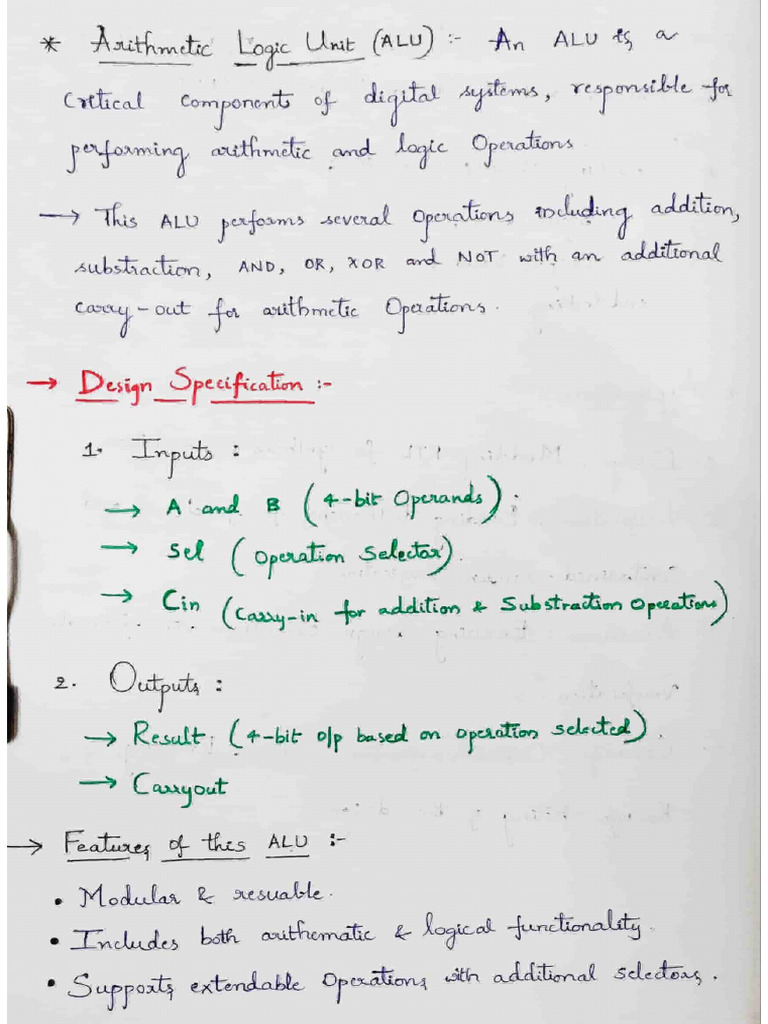 * Arithmetic Logic Unit (ALU) :- An ALU is a
Critical Components of digital systems, responsible for
performing arithmetic and logic Operations
→ This ALU performs several Operations including addition,
substraction, AND, OR, XOR and NOT with an additional
carry-out for arithmetic Operations.
→ Design Specification :-
1. Inputs :
→ A and B (4-bit Operands).
→ Sel (Operation Selector).
→ Cin (Carry-in for addition & Substraction Operations)
2. Outputs :
→ Result: (4-bit o/p based on operation selected).
→ Carryout
→ Features of this ALU :-
• Modular & resuable.
• Includes both arithematic & logical functionality.
• Supports extendable Operations with additional selectors.